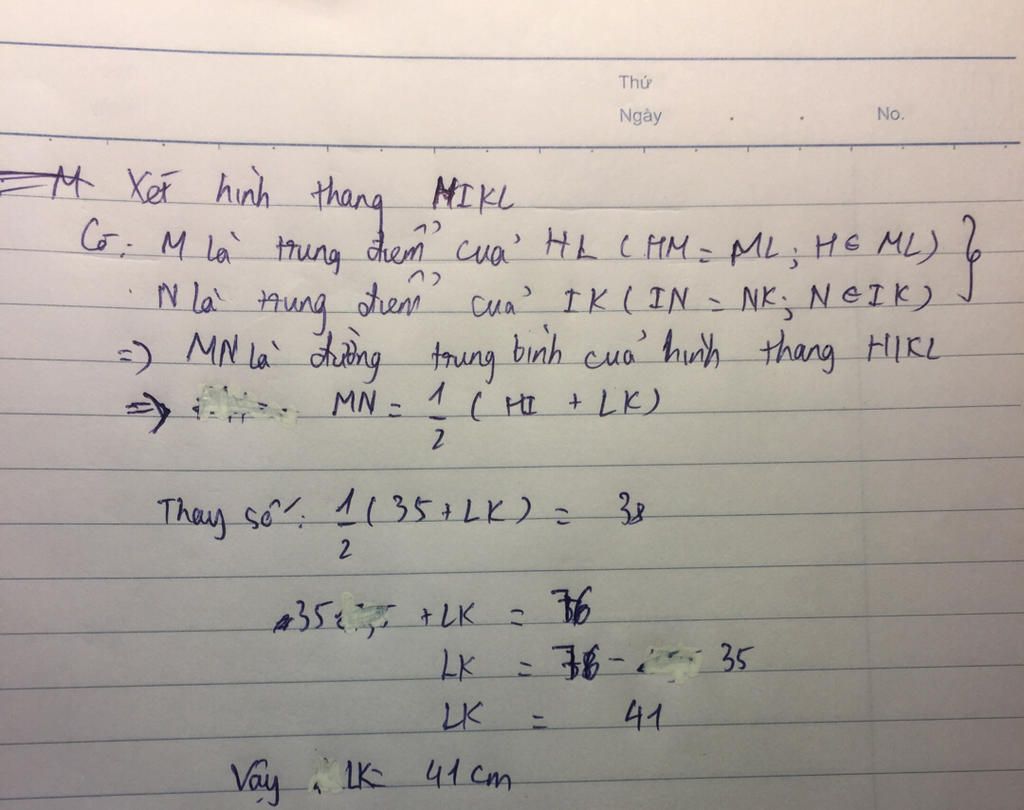 Thứ
Ngày . . No.
M Xét hình thang HIKL
Có: M là trung điểm của HL (HM = ML; H ∈ ML) }
N là trung điểm của IK (IN = NK; N ∈ IK)
=> MN là đường trung bình của hình thang HIKL
=> MN = 1/2 (HI + LK)
Thay số: 1/2 (35 + LK) = 38
35 + LK = 76
LK = 76 - 35
LK = 41
Vậy LK = 41 cm